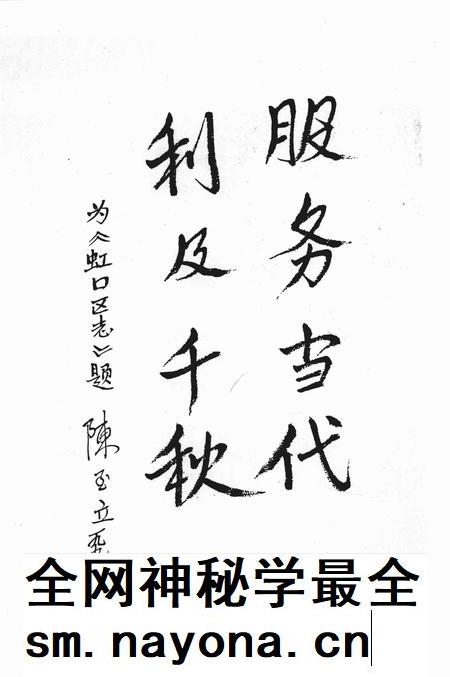 服务当代
利及千秋
为《虹口区志》题
陳至立
全网神秘学最全
sm.nayona.cn